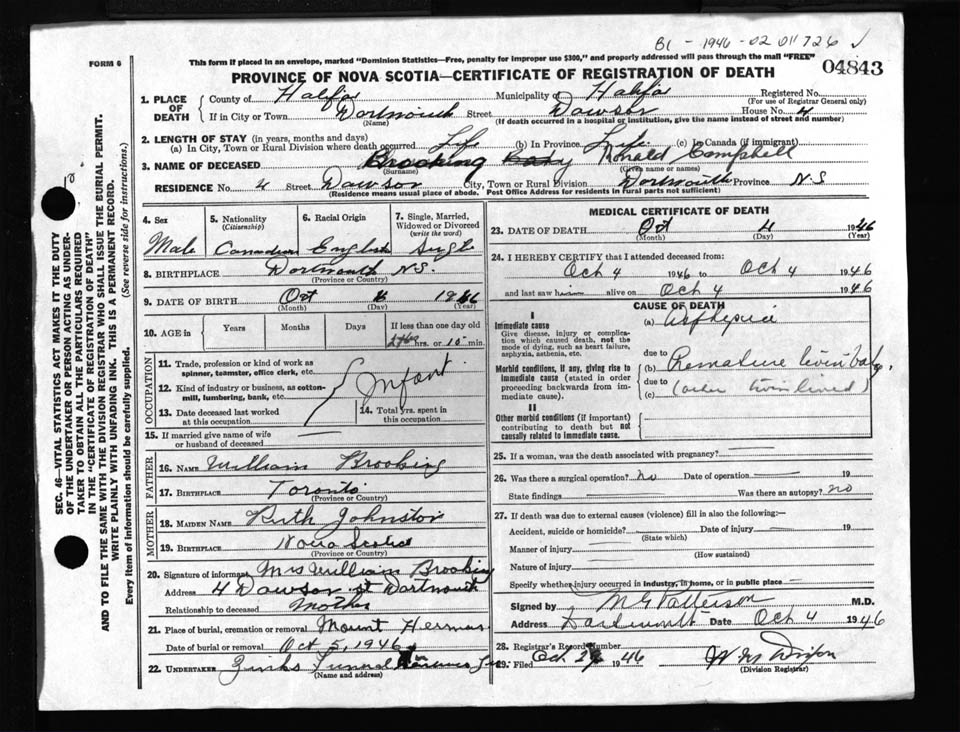 B1 - 1946 - 02 011726 ✓
FORM 6
This form if placed in an envelope, marked "Dominion Statistics—Free, penalty for improper use $300," and properly addressed will pass through the mail "FREE"
PROVINCE OF NOVA SCOTIA—CERTIFICATE OF REGISTRATION OF DEATH
04843
1. PLACE OF DEATH
County of Halifax Municipality of Halifax Registered No.
(For use of Registrar General only)
If in City or Town Dartmouth Street Dawson House No. 4
(Name) (If death occurred in a hospital or institution, give the name instead of street and number)
2. LENGTH OF STAY (in years, months and days)
(a) In City, Town or Rural Division where death occurred Life (b) In Province Life (c) In Canada (if immigrant)
3. NAME OF DECEASED Brooking Baby Ronald Campbell
(Surname) (Given name or names)
RESIDENCE No. 4 Street Dawson City, Town or Rural Division Dartmouth Province N.S
(Residence means usual place of abode. Post Office Address for residents in rural parts not sufficient)
4. Sex
Male
5. Nationality
(Citizenship)
Canadian
6. Racial Origin
English
7. Single, Married, Widowed or Divorced
(write the word)
Single
8. BIRTHPLACE Dartmouth N.S.
(Province or Country)
9. DATE OF BIRTH Oct 4 1946
(Month) (Day) (Year)
10. AGE in
Years Months Days If less than one day old
hrs. or 10 min.
OCCUPATION
11. Trade, profession or kind of work as spinner, teamster, office clerk, etc.
12. Kind of industry or business, as cotton-mill, lumbering, bank, etc.
Infant
13. Date deceased last worked at this occupation
14. Total yrs. spent in this occupation
15. If married give name of wife or husband of deceased
FATHER
16. NAME William Brooking
17. BIRTHPLACE Toronto
(Province or Country)
MOTHER
18. MAIDEN NAME Ruth Johnston
19. BIRTHPLACE Nova Scotia
(Province or Country)
20. Signature of informant Mrs William Brooking
Address 4 Dawson st Dartmouth
Relationship to deceased Mother
21. Place of burial, cremation or removal Mount Hermon
Date of burial or removal Oct 5, 1946
22. UNDERTAKER Zinks Funeral
(Name and address)
MEDICAL CERTIFICATE OF DEATH
23. DATE OF DEATH Oct 4 1946
(Month) (Day) (Year)
24. I HEREBY CERTIFY that I attended deceased from:
Oct 4 1946 to Oct 4 1946
and last saw him alive on Oct 4 1946
CAUSE OF DEATH
I
Immediate cause
Give disease, injury or complication which caused death, not the mode of dying, such as heart failure, asphyxia, asthenia, etc.
(a) Asphyxia
due to
Morbid conditions, if any, giving rise to immediate cause (stated in order proceeding backwards from immediate cause).
(b) Premature twin baby
due to
(c) (other twin lived)
II
Other morbid conditions (if important) contributing to death but not causally related to immediate cause.
25. If a woman, was the death associated with pregnancy?
26. Was there a surgical operation? No Date of operation 19
State findings Was there an autopsy? no
27. If death was due to external causes (violence) fill in also the following:—
Accident, suicide or homicide? Date of injury 19
(State which)
Manner of injury
(How sustained)
Nature of injury
Specify whether injury occurred in industry, in home, or in public place
Signed by M G Patterson M.D.
Address Dartmouth Date Oct 4 1946
28. Registrar's Record Number
29. Filed Oct. 1946
(Division Registrar)
SEC. 46—VITAL STATISTICS ACT MAKES IT THE DUTY
OF THE UNDERTAKER OR PERSON ACTING AS UNDER-
TAKER TO OBTAIN ALL THE PARTICULARS REQUIRED
IN THE "CERTIFICATE OF REGISTRATION OF DEATH"
AND TO FILE THE SAME WITH THE DIVISION REGISTRAR WHO SHALL ISSUE THE BURIAL PERMIT.
WRITE PLAINLY WITH UNFADING INK. THIS IS A PERMANENT RECORD.
Every item of information should be carefully supplied. (See reverse side for instructions.)